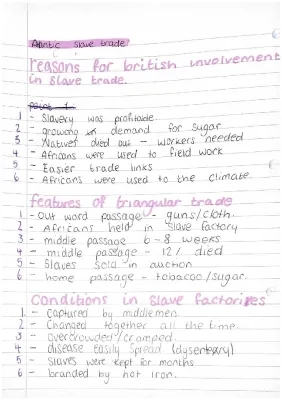 Atlantic slave trade
reasons for british involvement
in slave trade.
point 1
1 - Slavery was profitable
2 - growing demand for sugar
3 - Natives died out - workers needed
4 - Africans were used to field work
5 - Easier trade links
6 - Africans were used to the climate
features of triangular trade
1 - Out word passage - guns/cloth.
2 - Africans held in slave factory
3 - middle passage 6-8 weeks
4 - middle passage - 12% died
5 - Slaves sold in auction
6 - home passage - tobacoo/sugar.
Conditions in slave factories
1 - Captured by middlemen.
2 - Changed together all the time.
3 - overcrowded/cramped.
4 - disease easily spread (dysentery)
5 - slaves were kept for months
6 - branded by hot iron.